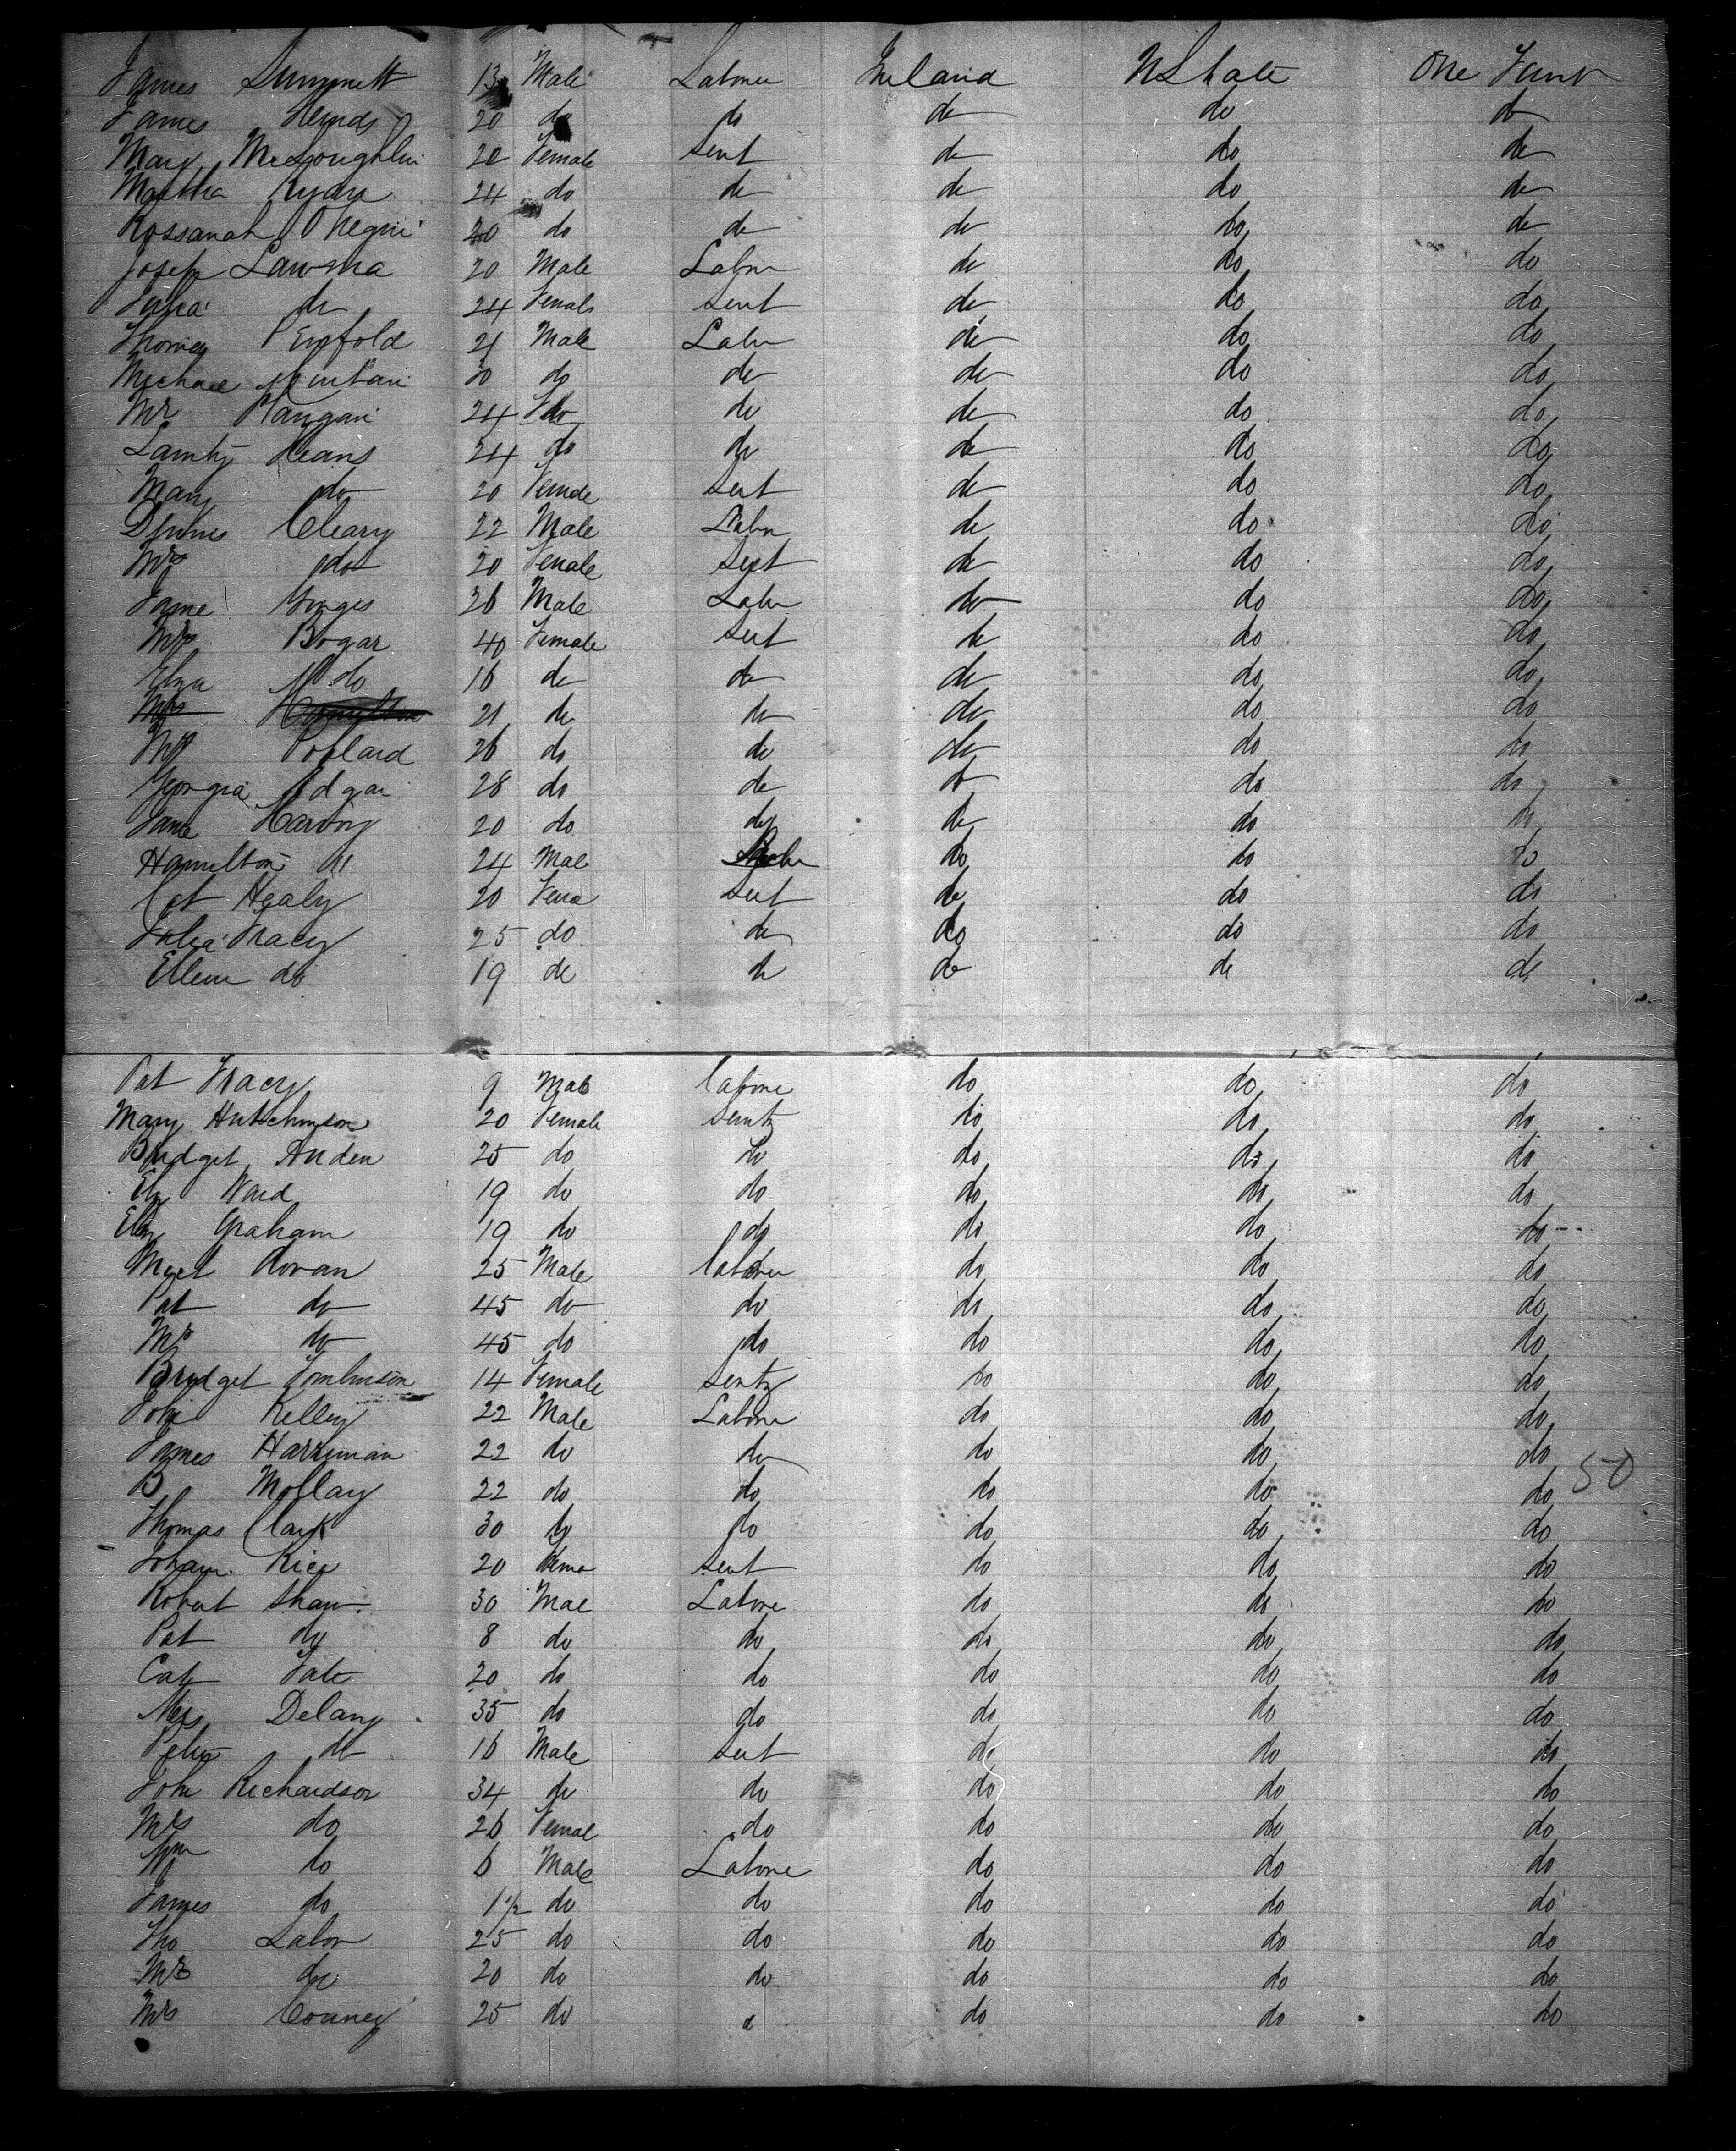 James Summett 13 Male Labour Ireland US tate One Trunk
James Hinds 20 do do do do do
Mary McLoughlin 20 Female Sevt do do do
Martha Ryan 24 do do do do do
Rossanah 20 do do do do do
Joseph Lawma 20 Male Labur do do do
Julia do 24 Female Sevt do do do
Thomas Penfold 21 Male Labr do do do
Michael 20 do do do do do
Mr Mangan 24 do do do do do
Keans 24 do do do do do
Mary do 20 Female Sevt do do do
Dennis Cleary 22 Male Labur do do do
Mrs do 20 Female Sevt do do do
Jame 26 Male Labr do do do
Mrs Bogar 40 Female Sevt do do do
Eliza do 16 do do do do do
Mrs Hamilton 21 do do do do do
Mrs Pollard 26 do do do do do
Georgia Edgar 28 do do do do do
Jane Harvey 20 do do do do do
Hamilton 24 Male do do do
Cat Healy 20 Fema Sevt do do do
Julia Tracy 25 do do do do do
Ellen do 19 do do do do do
Pat Tracy 9 Male labore do do do
Mary Hutchinson 20 Female Sevnt do do do
Bridget Auden 25 do do do do do
Elz Ward 19 do do do do do
Eliz Graham 19 do do do do do
Doran 25 Male labore do do do
Pat do 45 do do do do do
Mr do 45 do do do do do
Bridget Tomlinson 14 Female Sevnt do do do
John Kelley 22 Male Labore do do do
James Harriman 22 do do do do do
B Mollay 22 do do do do do 50
Thomas Clark 30 do do do do do
Johann Rice 20 Fema Sevt do do do
Robert Shaw 30 Male Labore do do do
Pat do 8 do do do do do
Cat Tate 20 do do do do do
Mrs Delany 35 do do do do do
Peter do 16 Male Sevt do do do
John Richardson 34 do do do do do
Mrs do 26 Femal do do do do
Wm do 6 Male Labore do do do
James do 1 1/2 do do do do do
Tho Labor 25 do do do do do
Mrs do 20 do do do do do
Mrs Couney 25 do d do do do